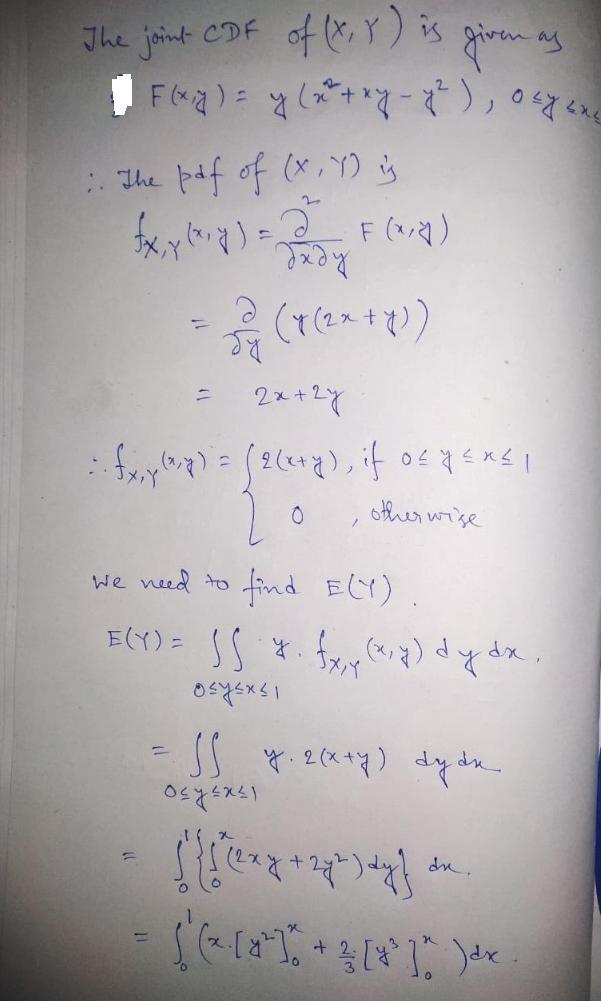 The joint CDF of (X, Y) is given as
F(x,y) = y (x² + xy - y²), 0≤y≤x≤
∴ The pdf of (X, Y) is
f_{X,Y}(x,y) = ∂²/∂x∂y F(x,y)
= ∂/∂y (y(2x+y))
= 2x+2y
∴ f_{X,Y}(x,y) = { 2(x+y), if 0≤y≤x≤1
0, otherwise
We need to find E(Y).
E(Y) = ∬ y. f_{X,Y}(x,y) dy dx.
0≤y≤x≤1
= ∬ y. 2(x+y) dy dx
0≤y≤x≤1
= ∫₀¹{∫₀ˣ(2xy + 2y²)dy} dx.
= ∫₀¹(x.[y²]₀ˣ + 2/3 [y³]₀ˣ)dx.